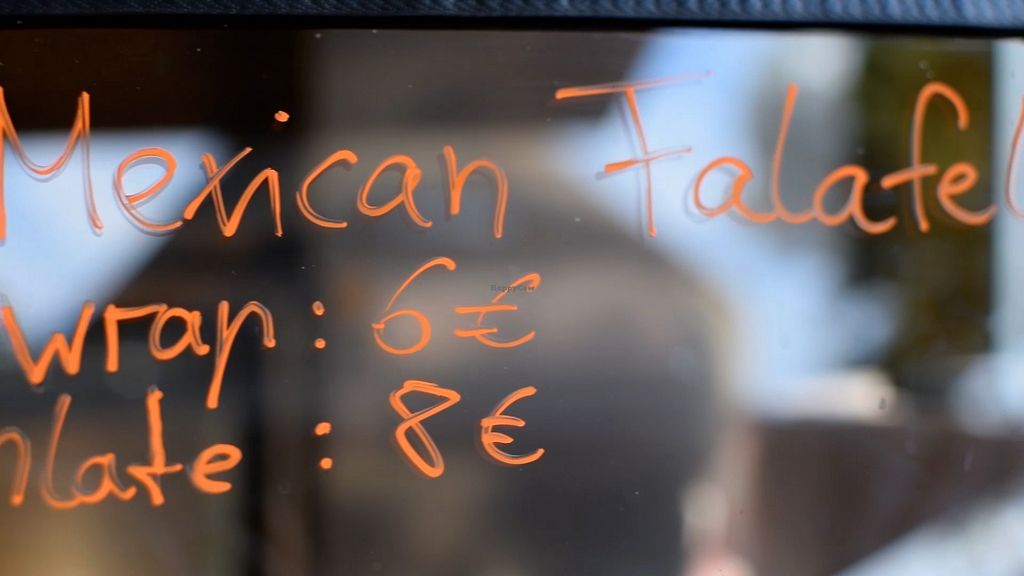 Mexican Falafel
wrap : 6€
plate : 8€
HappyCow